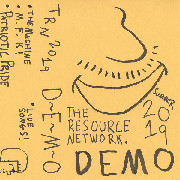 TRN 2019
D-E-M-O
• THE MACHINE
• M.F.K!
• PATRIOTIC PRIDE
• LIVE SONGS!
SUMMER
2019
THE
RESOURCE
NETWORK.
DEMO